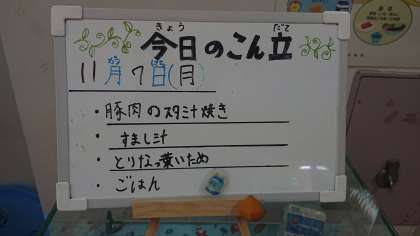 きょう だて
今日のこん立
11月7日(月)
・豚肉のスタミナ焼き
・すまし汁
・とりなっ葉いため
・ごはん